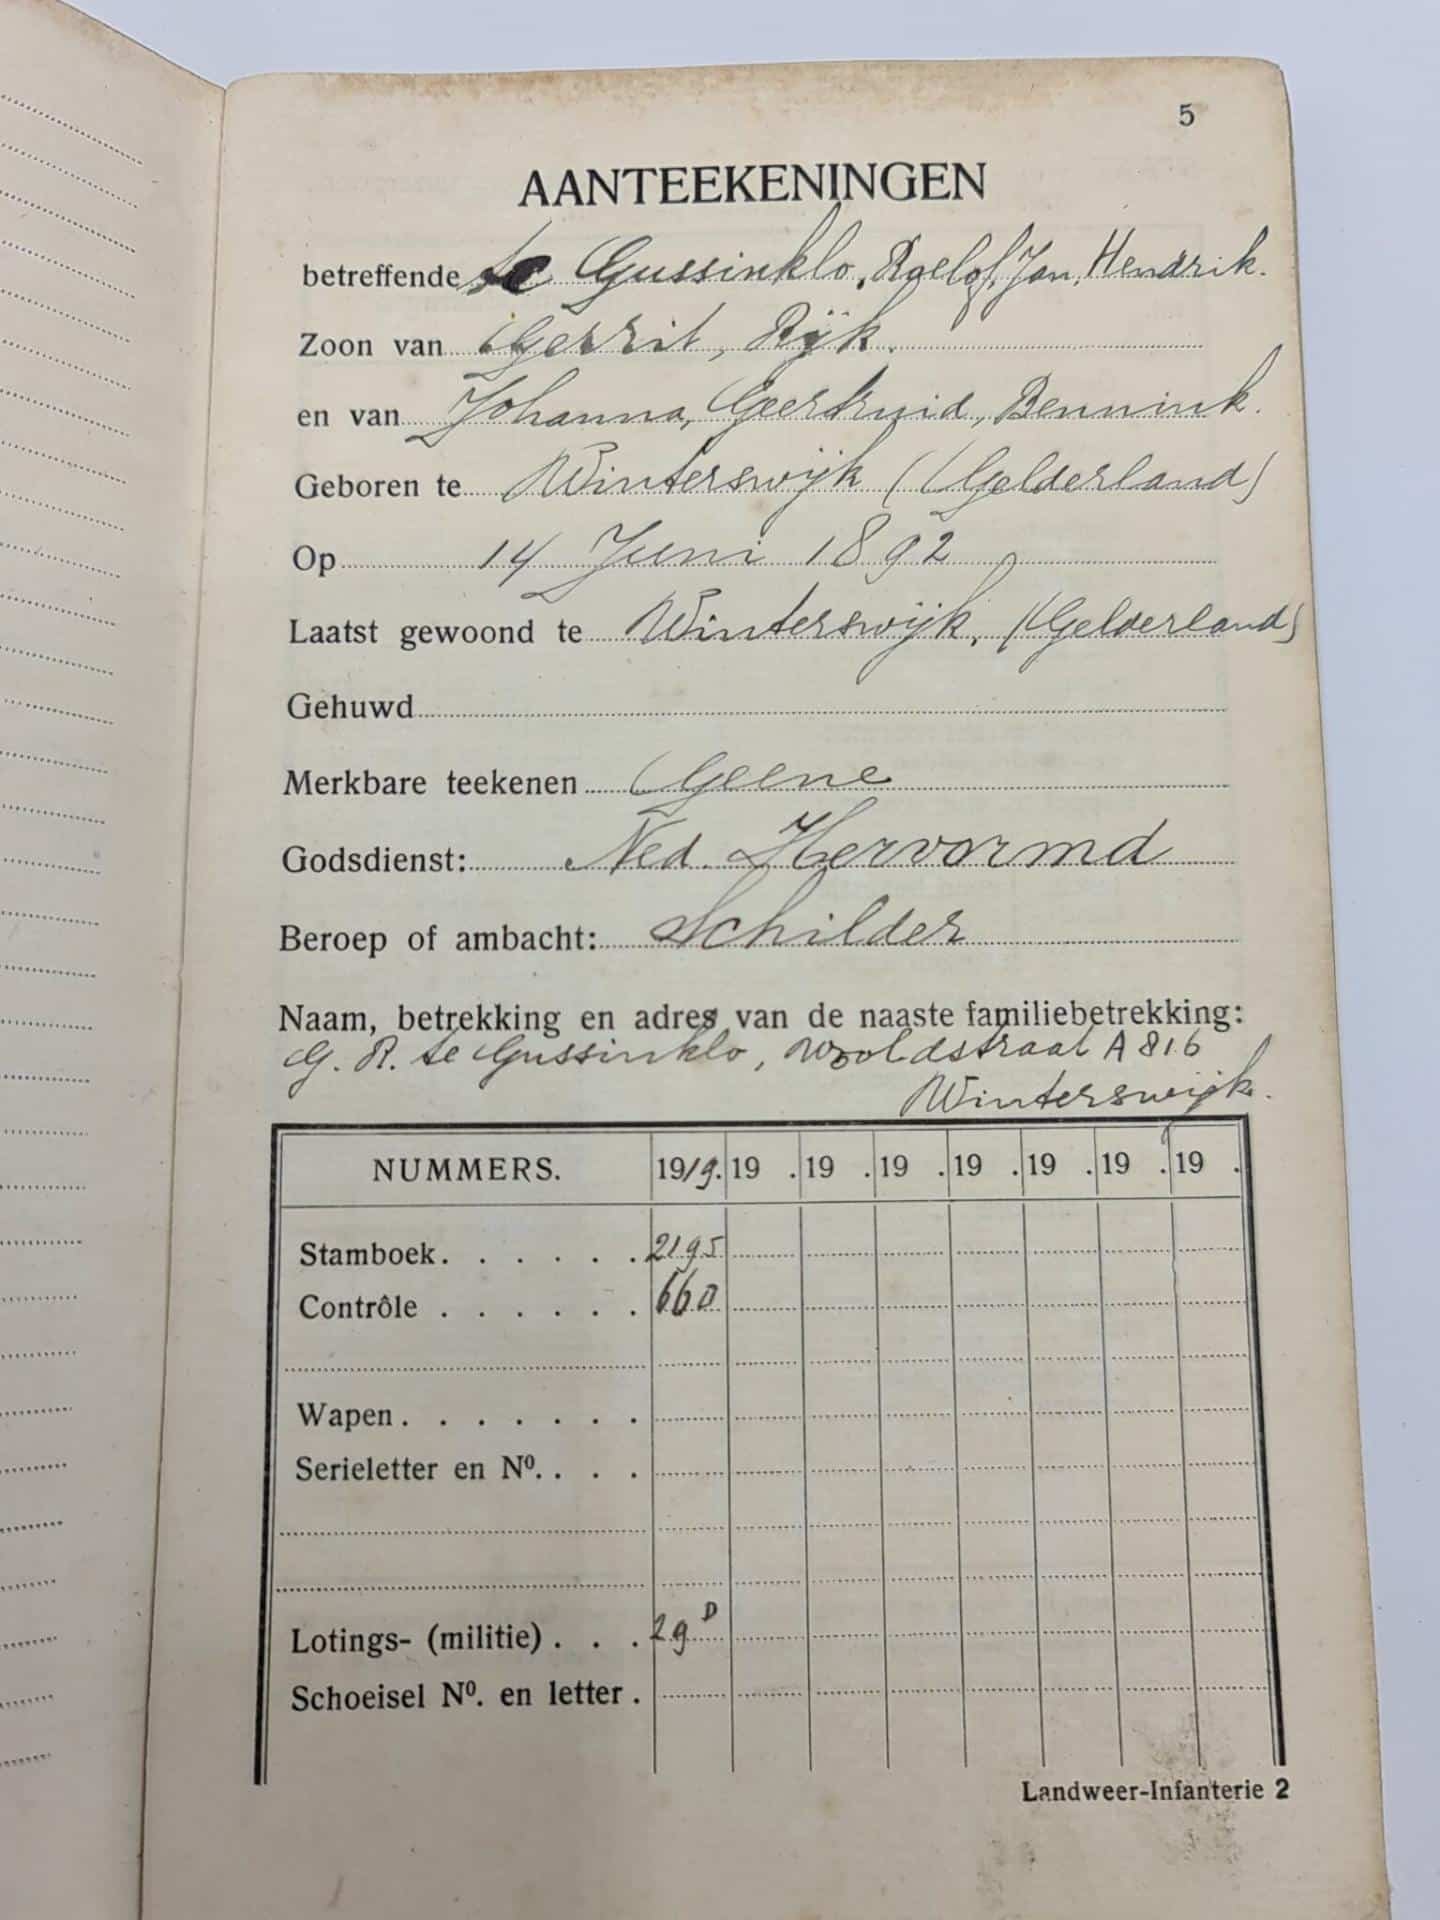 5
AANTEEKENINGEN
betreffende te Gussinklo, Roelof, Jan, Hendrik.
Zoon van Gerrit, Rijk.
en van Johanna, Geertruid, Bennink.
Geboren te Winterswijk (Gelderland)
Op 14 Juni 1892
Laatst gewoond te Winterswijk, (Gelderland)
Gehuwd
Merkbare teekenen Geene
Godsdienst: Ned. Hervormd
Beroep of ambacht: Schilder
Naam, betrekking en adres van de naaste familiebetrekking:
G. R. te Gussinklo, Wooldstraat A 816
Winterswijk.
NUMMERS. 1919. 19 . 19 . 19 . 19 . 19 . 19 . 19 .
Stamboek. . . . . . . 2195
Contrôle . . . . . . 660
Wapen. . . . . . .
Serieletter en Nº. . . .
Lotings- (militie) . . . 29 D
Schoeisel Nº. en letter .
Landweer-Infanterie 2